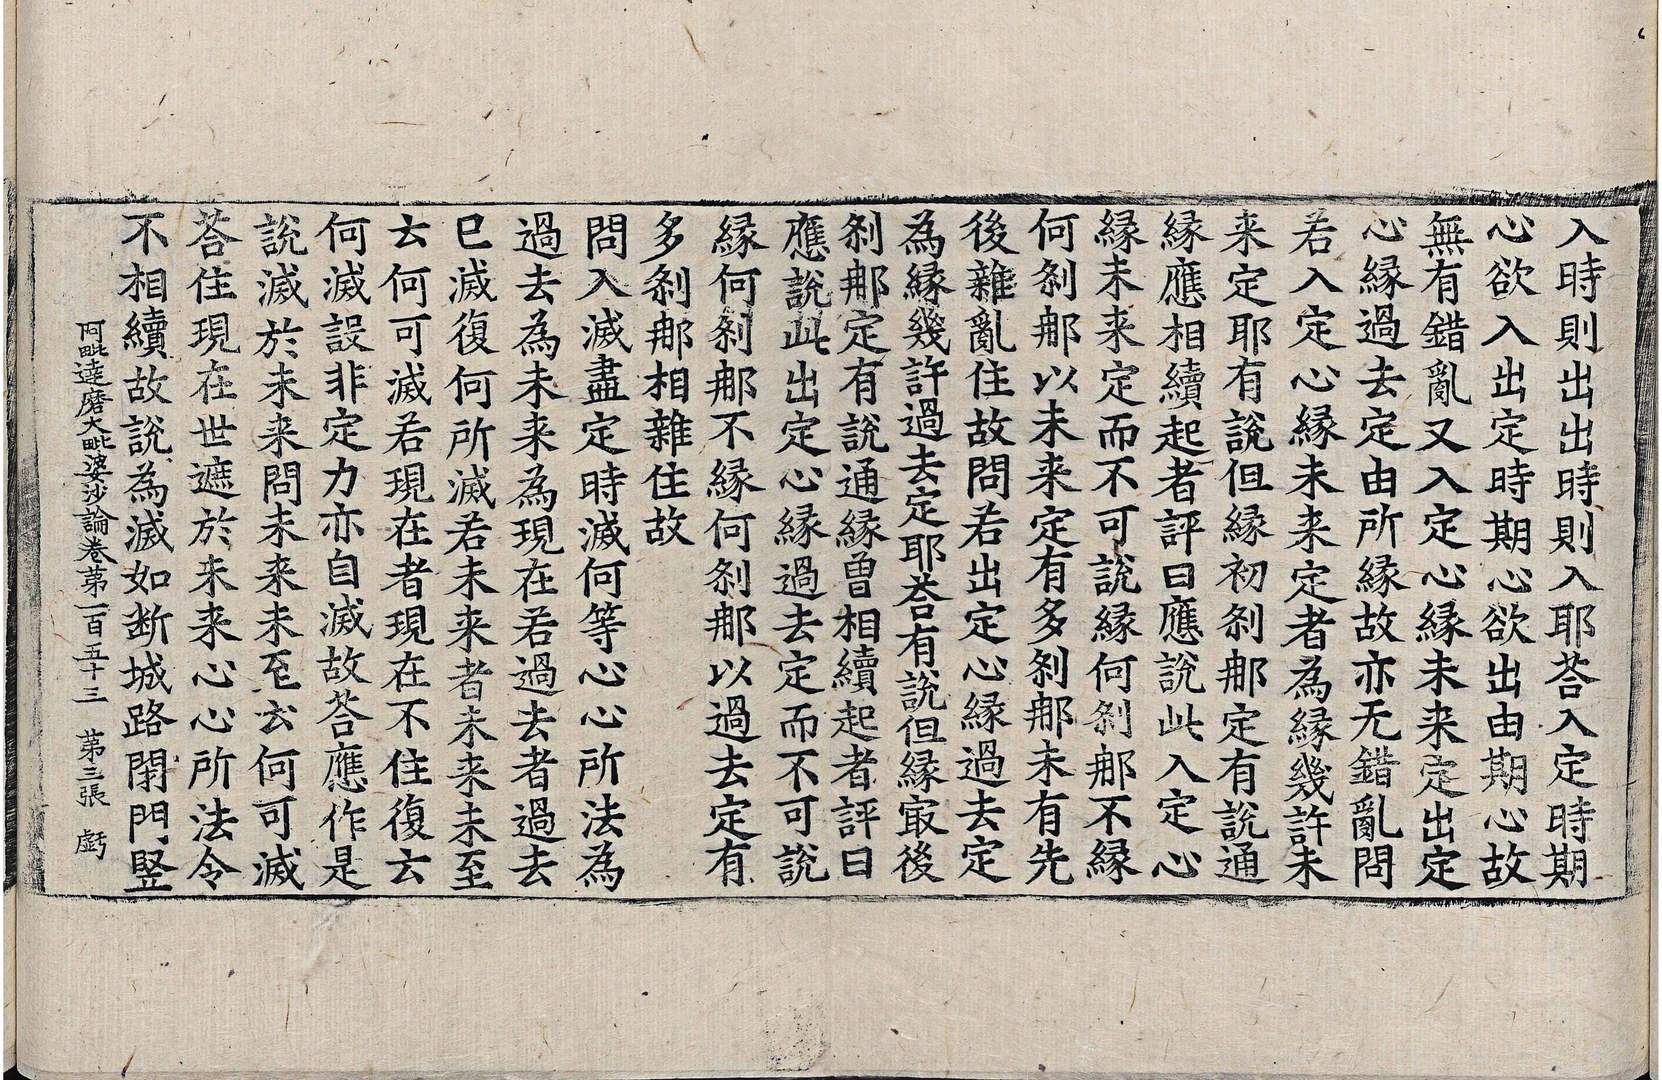 入時則出出時則入耶荅入定時期
心欲入出定時期心欲出由期心故
無有錯亂又入定心緣未来定出定
心緣過去定由所緣故亦无錯亂問
若入定心緣未来定者為緣幾許未
来定耶有說但緣初刹郍定有說通
緣應相續起者評曰應說此入定心
緣未来定而不可說緣何刹郍不緣
何刹郍以未来定有多刹郍未有先
後雜亂住故問若出定心緣過去定
為緣幾許過去定耶荅有說但緣冣後
刹郍定有說通緣曾相續起者評曰
應說此出定心緣過去定而不可說
緣何刹郍不緣何刹郍以過去定有
多刹郍相雜住故
問入滅盡定時滅何等心心所法為
過去為未来為現在若過去者過去
已滅復何所滅若未来者未来未至
云何可滅若現在者現在不住復云
何滅設非定力亦自滅故荅應作是
說滅於未来問未来未至云何可滅
荅住現在世遮於未来心心所法令
不相續故說為滅如断城路閇門竪
阿毗達磨大毗婆沙論卷苐一百五十三 苐三張 虧